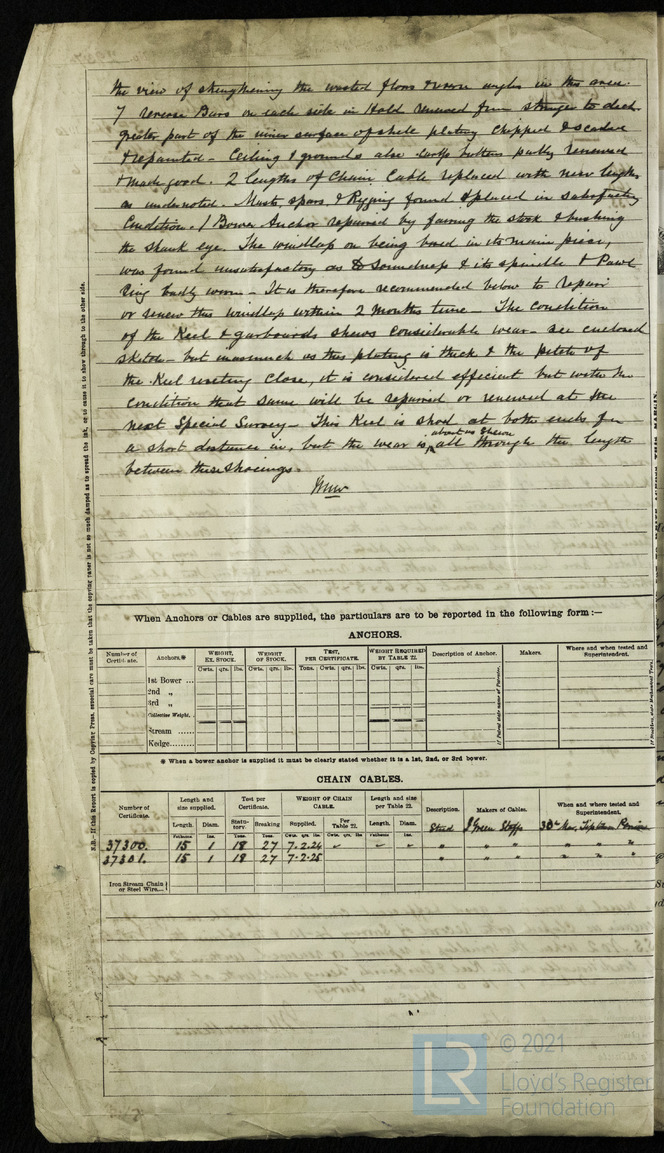 the view of strengthening the wasted floors & reverse angles in this area.
7 reverse Bars on each side in Hold renewed from stringer to deck
greater part of the inner surface of shell plating chipped & scaled
& repainted - Ceiling & grounds also bottom partly renewed
& made good. 2 lengths of Chain Cable replaced with new lengths
as undernoted. Masts, spars, & Rigging found & placed in satisfactory
Condition. 1 Bower Anchor repaired by fairing the stock & bushing
the shank eye. The windlass on being bored in its main piece,
was found unsatisfactory as to Soundness & its spindle & Pawl
Ring badly worn - It is therefore recommended below to repair
or renew this windlass within 2 Months time - The condition
of the Keel & garboards shews considerable wear - see enclosed
sketch - but inasmuch as this plating is thick & the pitch of
the Keel riveting close, it is considered efficient but with the
condition that same will be repaired or renewed at the
next Special Survey - This Keel is shod at both ends for
a short distance in, but the wear is about as shewn all through the length
between these shoeings.
N.B.—If this Report is copied by Copying Press, especial care must be taken that the copying paper is not so much damped as to spread the ink, or to cause it to show through to the other side.
When Anchors or Cables are supplied, the particulars are to be reported in the following form :—
ANCHORS.
Number of Certificate. Anchors.* WEIGHT, EX. STOCK. WEIGHT OF STOCK. TEST, PER CERTIFICATE. WEIGHT REQUIRED BY TABLE 22. Description of Anchor. Makers. Where and when tested and Superintendent.
Cwts. qrs. lbs. Cwts. qrs. lbs. Tons. Cwts. qrs. lbs. Cwts. qrs. lbs.
1st Bower ...
2nd „
3rd „
Collective Weight.
Stream ......
Kedge.........
* When a bower anchor is supplied it must be clearly stated whether it is a 1st, 2nd, or 3rd bower.
CHAIN CABLES.
Number of Certificate. Length and size supplied. Test per Certificate. WEIGHT OF CHAIN CABLE. Length and size per Table 22. Description. Makers of Cables. When and where tested and Superintendent.
Length. Diam. Statutory. Breaking Supplied. Per Table 22. Length. Diam. Stud J Green Staffs
Fathoms Ins. Tons. Tons. Cwts. qrs. lbs Cwts. qrs. lbs Fathoms Ins.
37300. 15 1 18 27 7.2.24 " " " " " " " " "
37301. 15 1 18 27 7.2.25 " " " " " "
Iron Stream Chain or Steel Wire....
LR © 2021
Lloyd's Register
Foundation